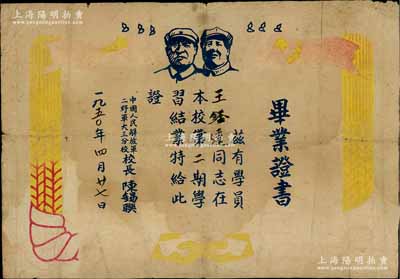 上海陽明拍賣
WWW.YMPM.COM
畢業證書
茲有學員
王 同志在
本校第二期學
習結業特給此
證
中國人民解放軍
二野軍大三分校校長 陳錫聯
一九五〇年四月廿七日
上海陽明拍賣